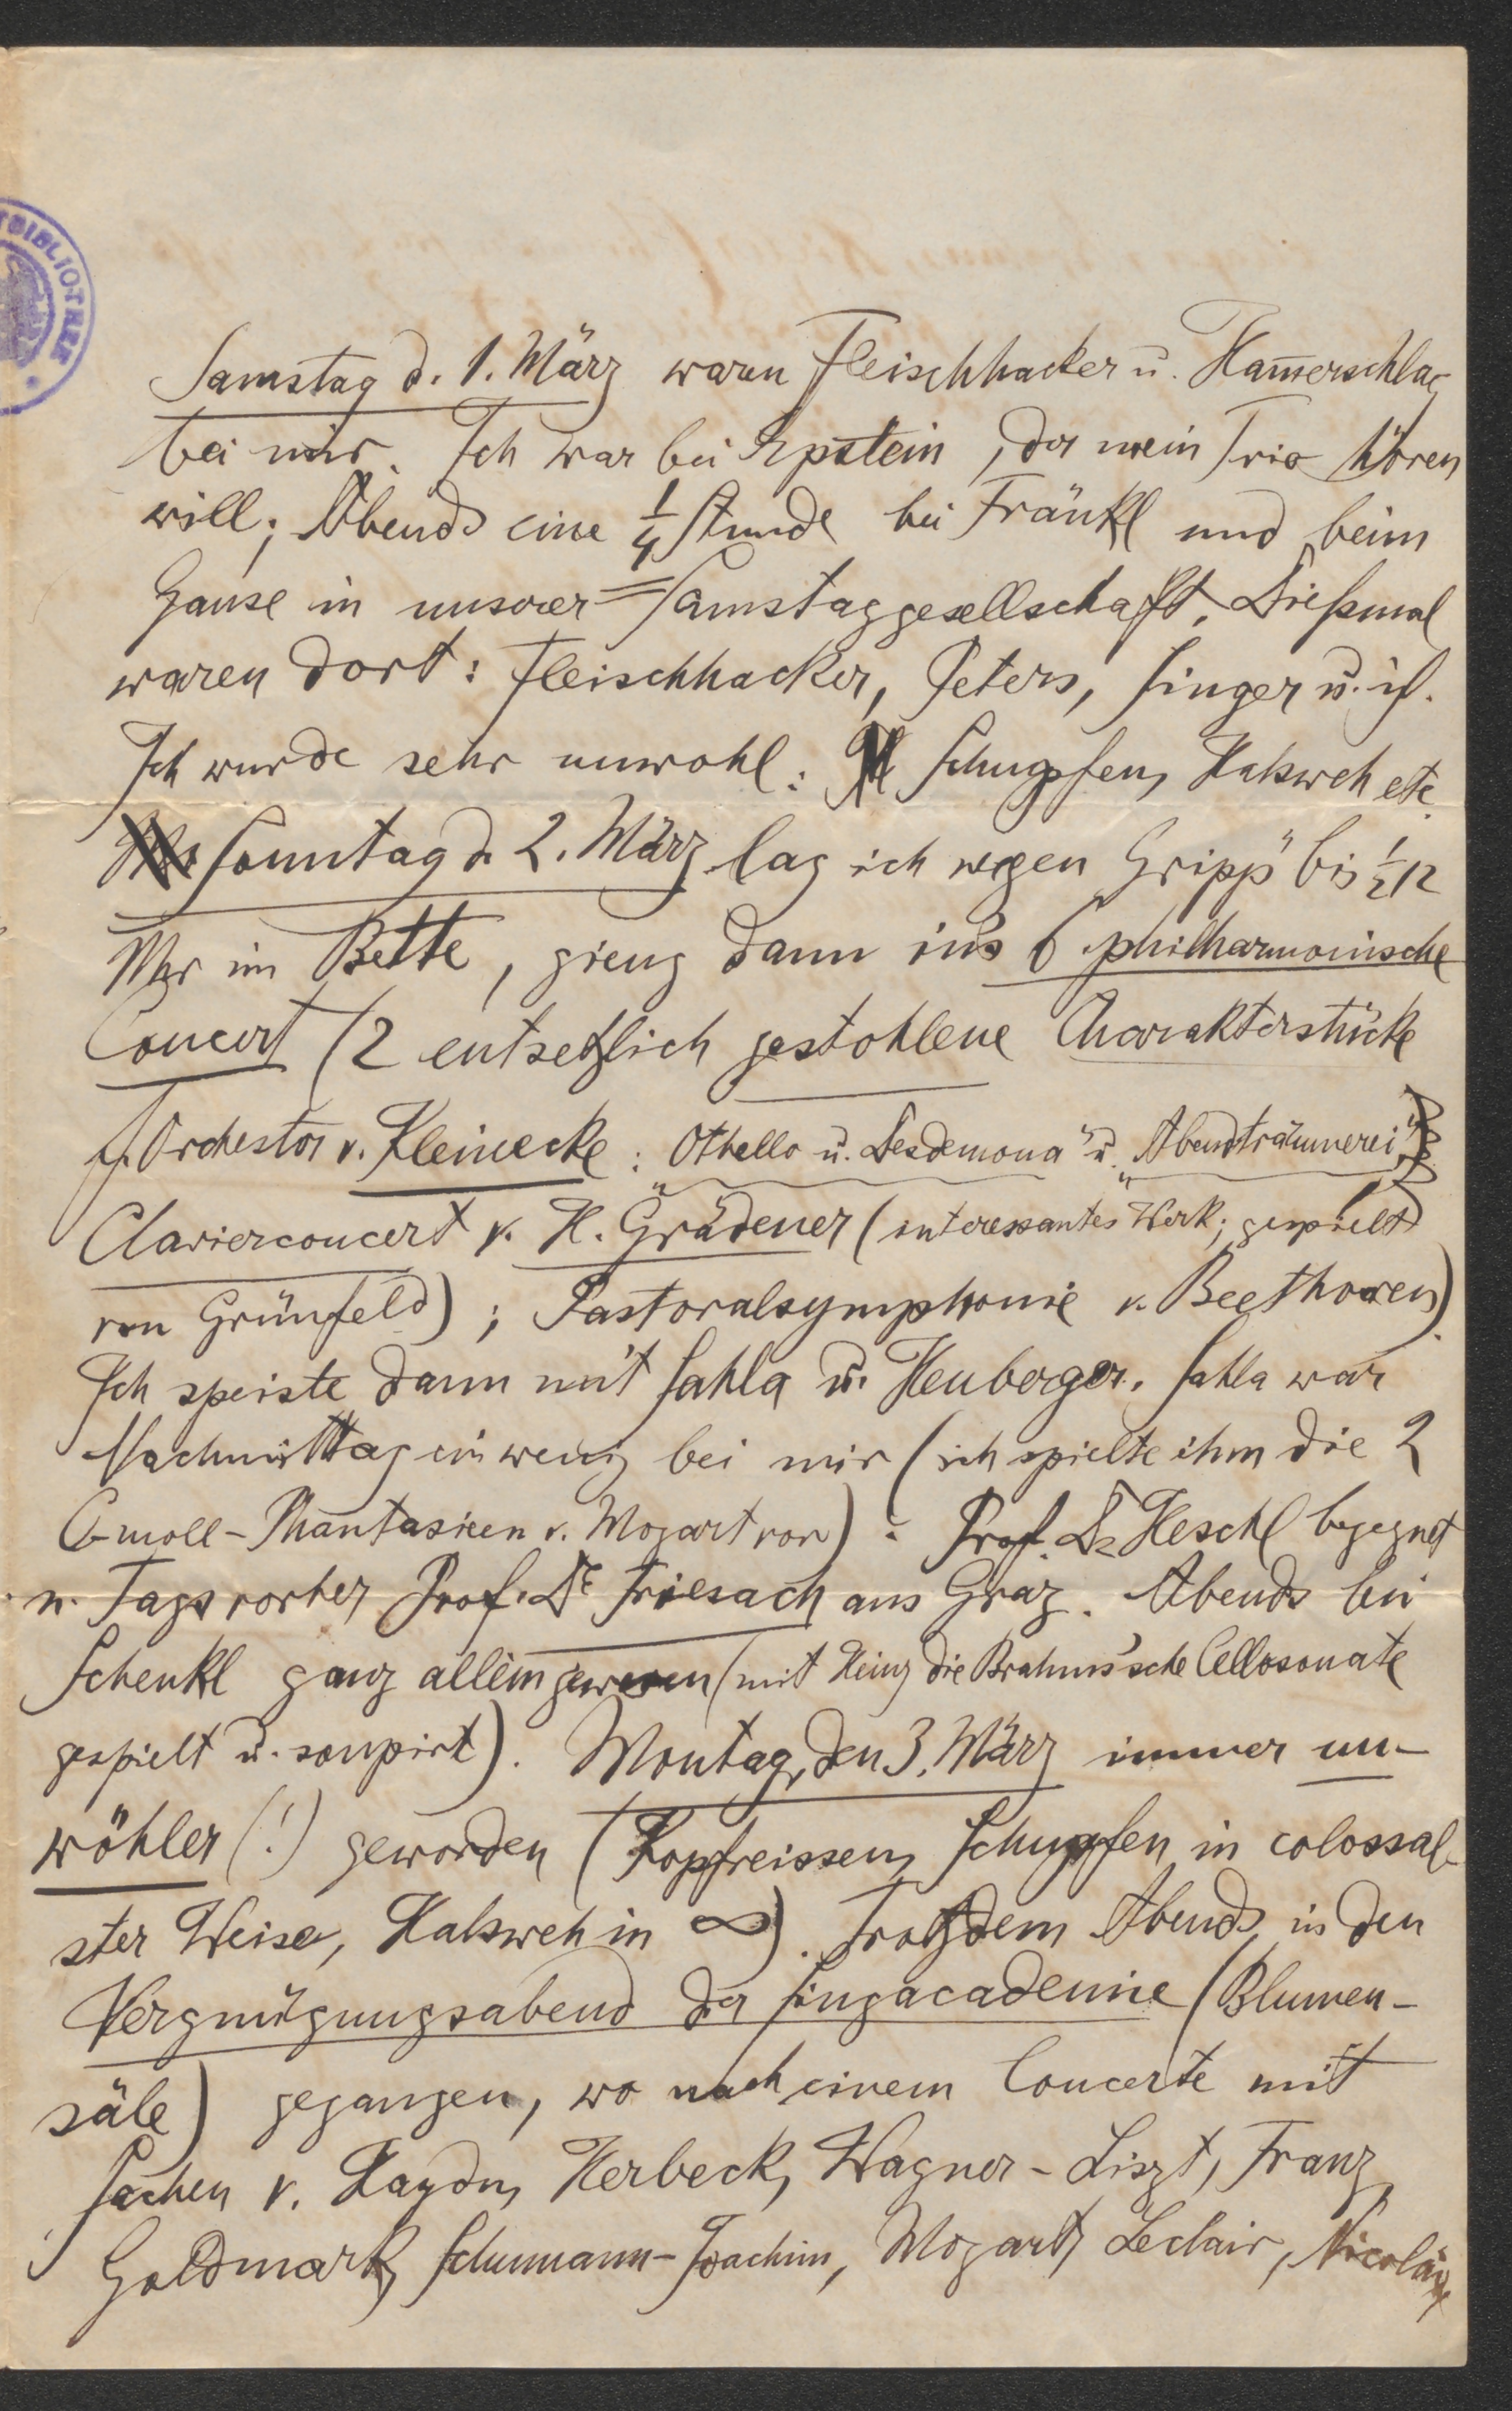 TBIBLIOTHEK
Samstag d. 1. März waren Fleischhacker u. Ham̅erschlag
bei mir. Ich war bei Epstein, der mein Trio hören
will; Abends eine 1/4 Stunde bei Fränkl und beim
Gause in unserer Samstaggesellschaft. Dießmal
waren dort: Fleischhacker, Peters, Singer u. ich.
Ich wurde sehr unwohl: Schnupfen, Halsweh etc.
Sonntag d. 2. März lag ich wegen Gripp' bis 1/2 12
Uhr im Bette, gieng dann in's 6. philharmonische
Concert (2 entsetzlich gestohlene Charakterstücke
f. Orchester v. Kleinecke: „Othello u. Desdemona" u. „Abendträumerei"
Clavierconcert v. H. Grädener (interessantes Werk; gespielt
von Grünfeld); Pastoralsymphonie v. Beethoven).
Ich speiste dann mit Sahla u. Heuberger. Sahla war
Nachmittag ein wenig bei mir (ich spielte ihm die 2
C-moll-Phantasieen v. Mozart vor). Prof. Dr Heschl begegnet
u. Tags vorher Prof. Dr Friesach aus Graz. Abends bei
Schenkl ganz allein gewesen (mit Heinz die Brahms'sche Cellosonate
gespielt u. soupirt). Montag, den 3. März immer un-
wöhler (!) geworden (Kopfreissen, Schnupfen in colossal-
ster Weise, Halsweh in ∞). Trotzdem Abends in den
Vergnügungsabend der Singacademie (Blumen-
säle) gegangen, wo nach einem Concerte mit
Sachen v. Haydn, Herbeck, Wagner-Liszt, Franz,
Goldmark, Schumann-Joachim, Mozart, Leclair, Nicolai